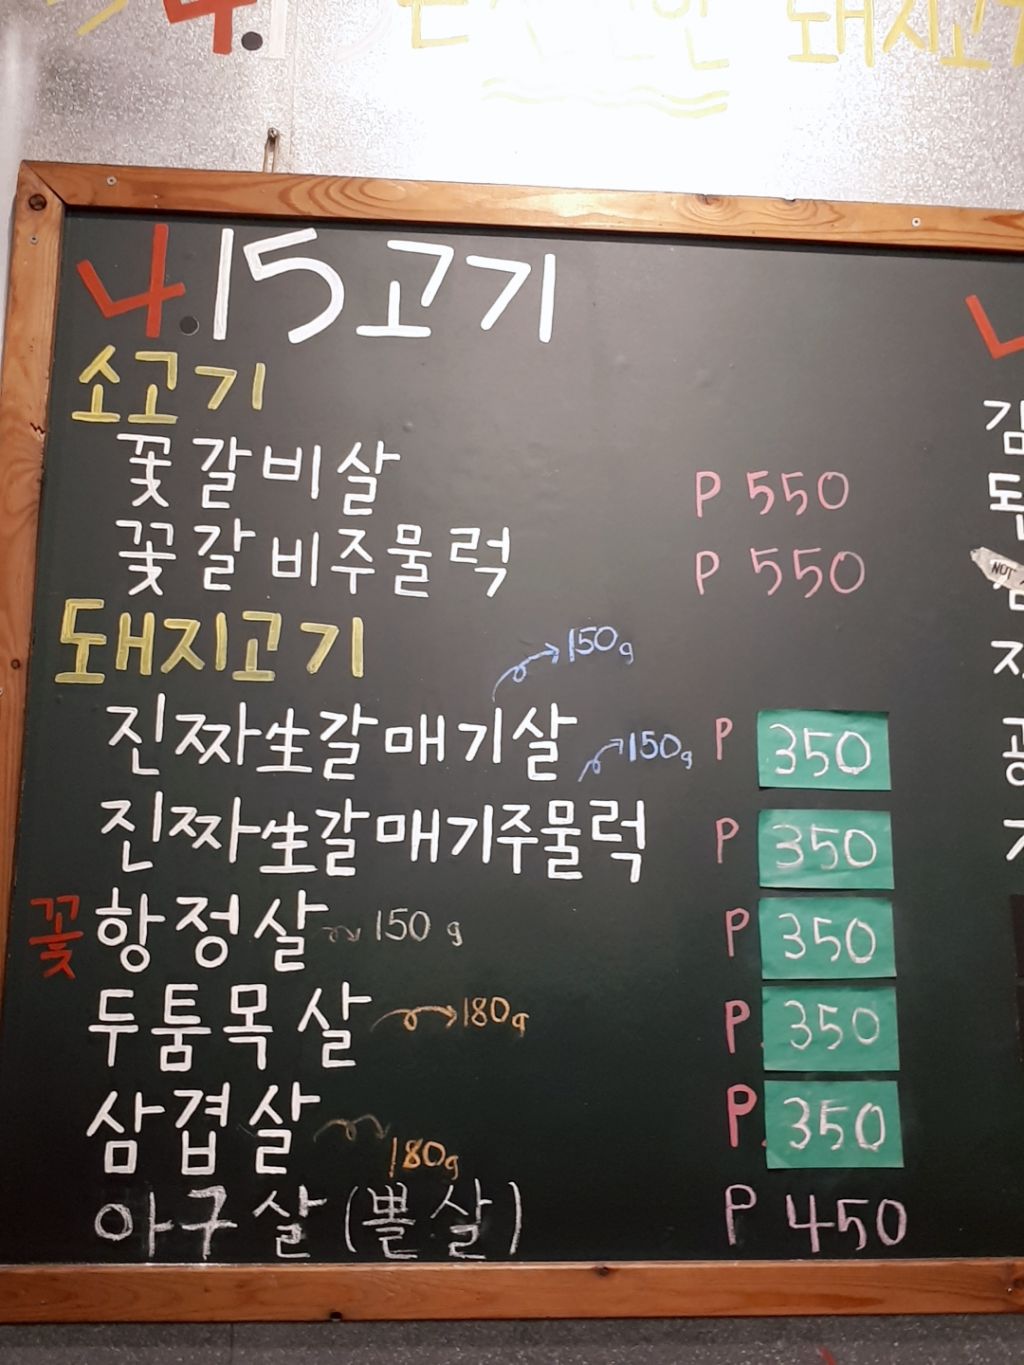 나.15고기
소고기
꽃갈비살 P 550
꽃갈비주물럭 P 550
돼지고기
150g
진짜生갈매기살 P 350
150g
진짜生갈매기주물럭 P 350
꽃항정살 150g P 350
두툼목살 180g P 350
삼겹살 180g P 350
아구살(뽈살) P 450
NOT